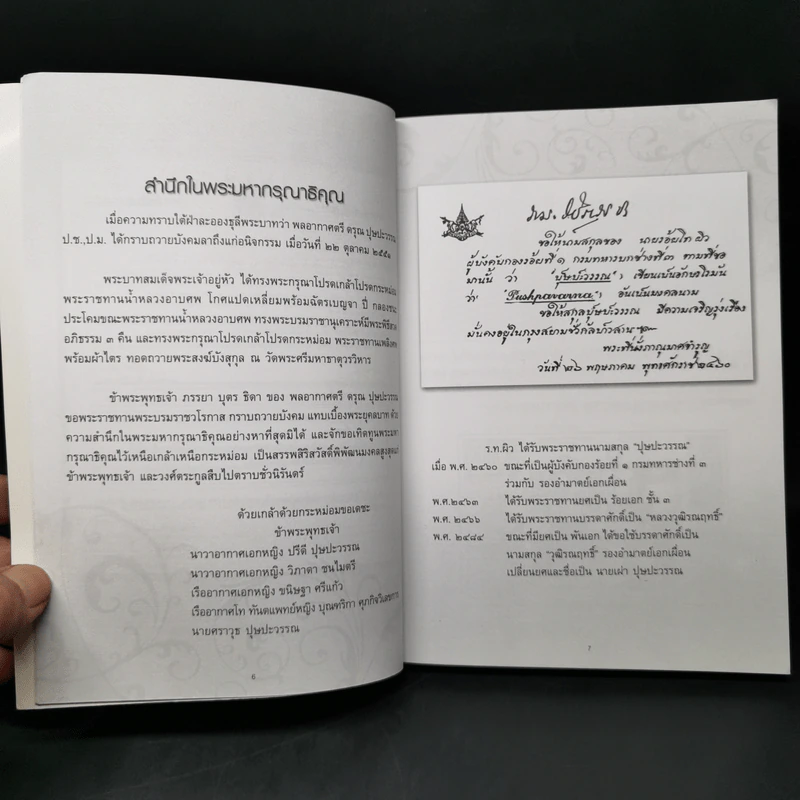 สำนึกในพระมหากรุณาธิคุณ
เมื่อความทราบใต้ฝ่าละอองธุลีพระบาทว่า พลอากาศตรี ดรุณ ปุษปะวรรณ
ป.ช.,ป.ม. ได้กราบถวายบังคมลาถึงแก่อนิจกรรม เมื่อวันที่ ๒๒ ตุลาคม ๒๕๕๑
พระบาทสมเด็จพระเจ้าอยู่หัว ได้ทรงพระกรุณาโปรดเกล้าโปรดกระหม่อม
พระราชทานน้ำหลวงอาบศพ โกศแปดเหลี่ยมพร้อมฉัตรเบญจา ปี่ กลองชนะ
ประโคมขณะพระราชทานน้ำหลวงอาบศพ ทรงพระบรมราชานุเคราะห์มีพระพิธีสวด
อภิธรรม ๓ คืน และทรงพระกรุณาโปรดเกล้าโปรดกระหม่อม พระราชทานเพลิงศพ
พร้อมผ้าไตร ทอดถวายพระสงฆ์บังสุกุล ณ วัดพระศรีมหาธาตุวรวิหาร
ข้าพระพุทธเจ้า ภรรยา บุตร ธิดา ของ พลอากาศตรี ดรุณ ปุษปะวรรณ
ขอพระราชทานพระบรมราชวโรกาส กราบถวายบังคม แทบเบื้องพระยุคลบาท ด้วย
ความสำนึกในพระมหากรุณาธิคุณอย่างหาที่สุดมิได้ และจักขอเทิดทูนพระมหา
กรุณาธิคุณไว้เหนือเกล้าเหนือกระหม่อม เป็นสรรพสิริสวัสดิ์พิพัฒนมงคลสูงสุดแก่
ข้าพระพุทธเจ้า และวงศ์ตระกูลสืบไปตราบชั่วนิรันดร์
ด้วยเกล้าด้วยกระหม่อมขอเดชะ
ข้าพระพุทธเจ้า
นาวาอากาศเอกหญิง ปรีดี ปุษปะวรรณ
นาวาอากาศเอกหญิง วิภาดา ชนไมตรี
เรืออากาศเอกหญิง ขนิษฐา ศรีแก้ว
เรืออากาศโท ทันตแพทย์หญิง บุณฑริกา
นายศราวุธ ปุษปะวรรณ
6
ขอให้นามสกุลของ นายร้อยโท ผิว
ผู้บังคับกองร้อยที่ ๑ กรมทหารบกช่างที่ ๓ ตามที่ขอ
มานั้น ว่า "ปุษปะวรรณ" เขียนเป็นอักษรโรมัน
ว่า "Pushpavarna" อันเป็นมงคลนาม
ขอให้สกุลปุษปะวรรณ มีความเจริญรุ่งเรือง
มั่นคงอยู่ในกรุงสยามชั่วกัลปาวสาน ๚
พระที่นั่งภาณุมาศจำรูญ
วันที่ ๒๖ พฤษภาคม พุทธศักราช ๒๔๖๐
ร.ท.ผิว ได้รับพระราชทานนามสกุล "ปุษปะวรรณ"
เมื่อ พ.ศ. ๒๔๖๐ ขณะที่เป็นผู้บังคับกองร้อยที่ ๑ กรมทหารช่างที่ ๓
ร่วมกับ รองอำมาตย์เอกเผื่อน
พ.ศ.๒๔๖๓ ได้รับพระราชทานยศเป็น ร้อยเอก ชั้น ๓
พ.ศ.๒๔๖๖ ได้รับพระราชทานบรรดาศักดิ์เป็น "หลวงวุฒิรณฤทธิ์"
พ.ศ. ๒๔๘๔ ขณะที่มียศเป็น พันเอก ได้ขอใช้บรรดาศักดิ์เป็น
นามสกุล "วุฒิรณฤทธิ์" รองอำมาตย์เอกเผื่อน
เปลี่ยนยศและชื่อเป็น นายเผ่า ปุษปะวรรณ
7